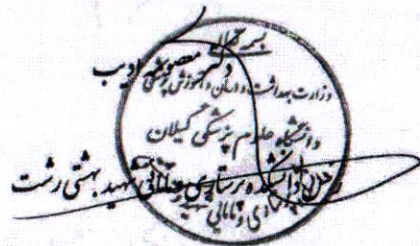 بسمه تعالی
دکتر معصومه ادیب
وزارت بهداشت، درمان و آموزش پزشکی
دانشگاه علوم پزشکی گیلان
دانشکده پرستاری مامائی شهید بهشتی رشت